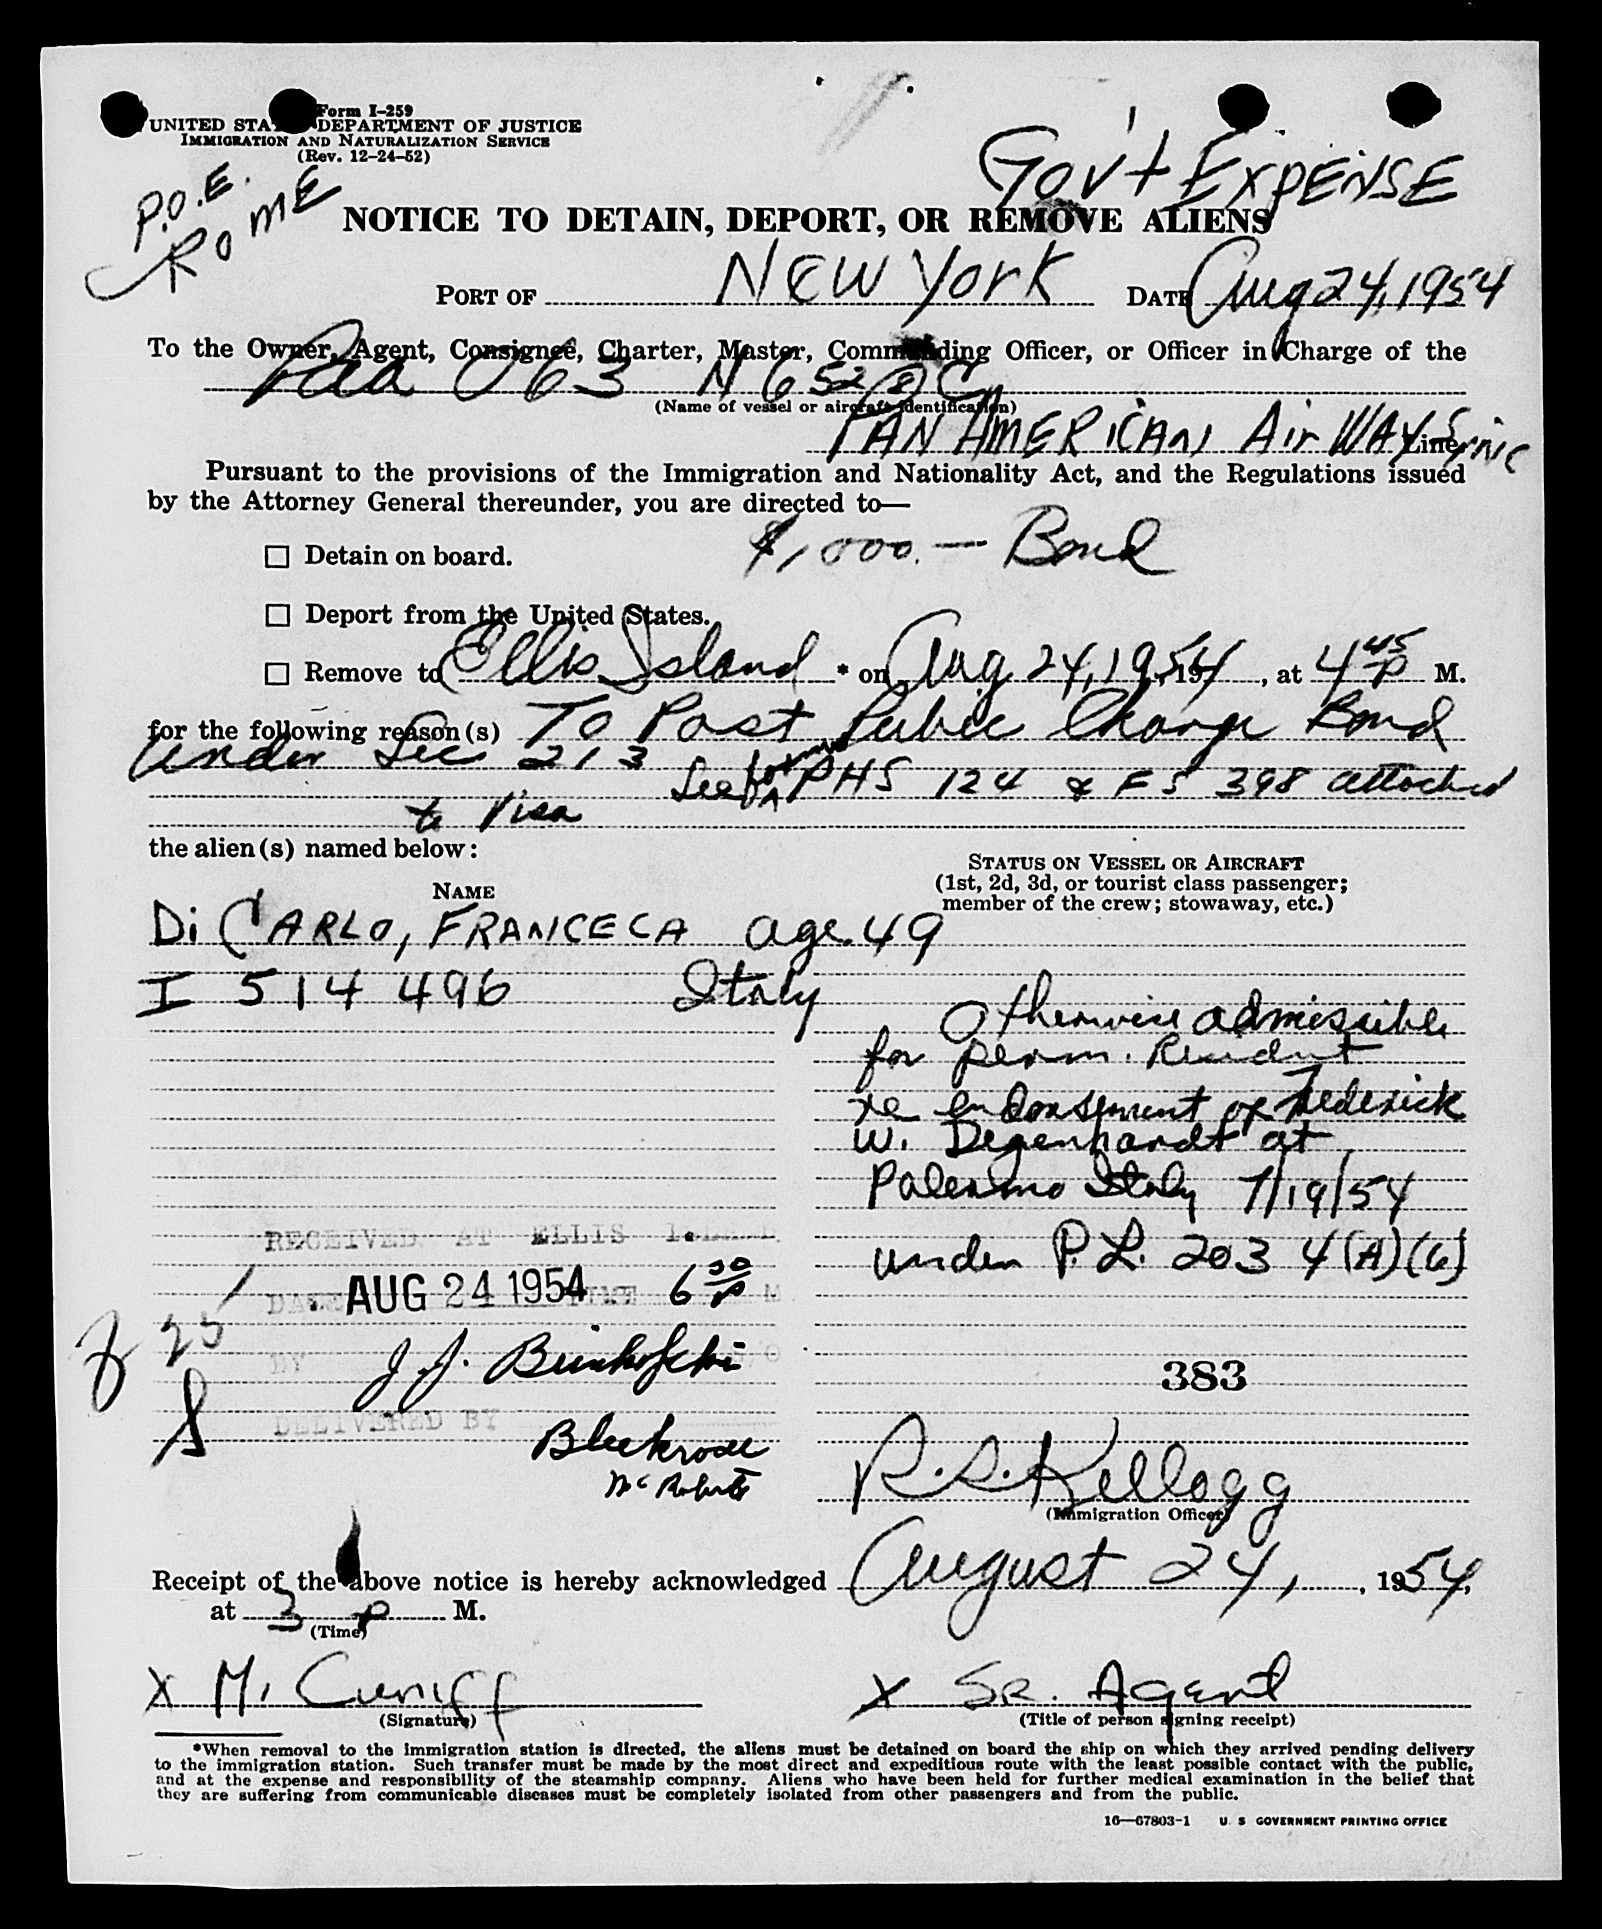 Form I-259
UNITED STA DEPARTMENT OF JUSTICE
IMMIGRATION AND NATURALIZATION SERVICE
(Rev. 12-24-52)
P.O.E.
ROME
Gov't EXPENSE
NOTICE TO DETAIN, DEPORT, OR REMOVE ALIENS
PORT OF New York DATE Aug 24, 1954
To the Owner, Agent, Consignee, Charter, Master, Commanding Officer, or Officer in Charge of the
Paa 063 N 6528 C
(Name of vessel or aircraft identification)
PAN AMERICAN Air WAYS, inc Line
Pursuant to the provisions of the Immigration and Nationality Act, and the Regulations issued
by the Attorney General thereunder, you are directed to—
☐ Detain on board. $1,000.— Bond
☐ Deport from the United States.
☐ Remove to Ellis Island * on Aug 24, 1954, 19, at 4 45 P M.
for the following reason(s) To Post Public Charge Bond
Under Sec 213 See forms PHS 124 & FS 398 attached
to Visa
the alien(s) named below:
NAME
STATUS ON VESSEL OR AIRCRAFT
(1st, 2d, 3d, or tourist class passenger;
member of the crew; stowaway, etc.)
Di CARLO, FRANCECA age. 49
I 514 496 Italy
Otherwise admissible
for perm. Resident
re endorsement of Frederick
W. Degenhardt at
Palermo Italy 7/19/54
under P.L. 203 4(A)(6)
RECEIVED AT ELLIS
DATE AUG 24 1954 TIME 6 30 P M
BY J. J.
DELIVERED BY
25
383
R. S. Kellogg
(Immigration Officer)
Receipt of the above notice is hereby acknowledged August 24, , 1954,
at 3 P M.
(Time)
X M. Cuniff
(Signature)
X SR. Agent
(Title of person signing receipt)
*When removal to the immigration station is directed, the aliens must be detained on board the ship on which they arrived pending delivery
to the immigration station. Such transfer must be made by the most direct and expeditious route with the least possible contact with the public,
and at the expense and responsibility of the steamship company. Aliens who have been held for further medical examination in the belief that
they are suffering from communicable diseases must be completely isolated from other passengers and from the public.
16—67803-1 U. S GOVERNMENT PRINTING OFFICE